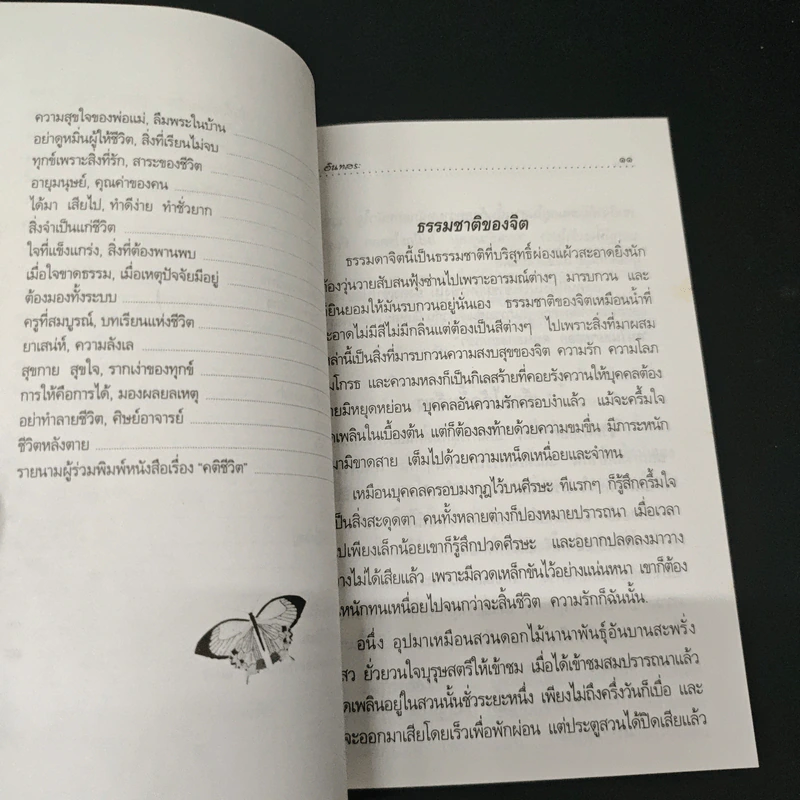 ความสุขใจของพ่อแม่, ลืมพระในบ้าน
อย่าดูหมิ่นผู้ให้ชีวิต, สิ่งที่เรียนไม่จบ
ทุกข์เพราะสิ่งที่รัก, สาระของชีวิต
อายุมนุษย์, คุณค่าของคน
ได้มา เสียไป, ทำดีง่าย ทำชั่วยาก
สิ่งจำเป็นแก่ชีวิต
ใจที่แข็งแกร่ง, สิ่งที่ต้องพานพบ
เมื่อใจขาดธรรม, เมื่อเหตุปัจจัยมีอยู่
ต้องมองทั้งระบบ
ครูที่สมบูรณ์, บทเรียนแห่งชีวิต
ยาเสน่ห์, ความลังเล
สุขกาย สุขใจ, รากเง่าของทุกข์
การให้คือการได้, มองผลยลเหตุ
อย่าทำลายชีวิต, ศิษย์อาจารย์
ชีวิตหลังตาย
รายนามผู้ร่วมพิมพ์หนังสือเรื่อง "คติชีวิต"
๑๑
ธรรมชาติของจิต
ธรรมดาจิตนี้เป็นธรรมชาติที่บริสุทธิ์ผ่องแผ้วสะอาดยิ่งนัก
ต้องวุ่นวายสับสนฟุ้งซ่านไปเพราะอารมณ์ต่างๆ มารบกวน และ
ยินยอมให้มันรบกวนอยู่นั่นเอง ธรรมชาติของจิตเหมือนน้ำที่
สะอาดไม่มีสีไม่มีกลิ่นแต่ต้องเป็นสีต่างๆ ไปเพราะสิ่งที่มาผสม
เหล่านี้เป็นสิ่งที่มารบกวนความสงบสุขของจิต ความรัก ความโลภ
โกรธ และความหลงก็เป็นกิเลสร้ายที่คอยรังควานให้บุคคลต้อง
มิหยุดหย่อน บุคคลอันความรักครอบงำแล้ว แม้จะครึ้มใจ
เพลินในเบื้องต้น แต่ก็ต้องลงท้ายด้วยความขมขื่น มีภาระหนัก
มิขาดสาย เต็มไปด้วยความเหน็ดเหนื่อยและจำทน
เหมือนบุคคลครอบมงกุฎไว้บนศีรษะ ทีแรกๆ ก็รู้สึกครึ้มใจ
เป็นสิ่งสะดุดตา คนทั้งหลายต่างก็ปองหมายปรารถนา เมื่อเวลา
ไปเพียงเล็กน้อยเขาก็รู้สึกปวดศีรษะ และอยากปลดลงมาวาง
ไม่ได้เสียแล้ว เพราะมีลวดเหล็กขันไว้อย่างแน่นหนา เขาก็ต้อง
หนักทนเหนื่อยไปจนกว่าจะสิ้นชีวิต ความรักก็ฉันนั้น.
อนึ่ง อุปมาเหมือนสวนดอกไม้นานาพันธุ์อันบานสะพรั่ง
ยั่วยวนใจบุรุษสตรีให้เข้าชม เมื่อได้เข้าชมสมปรารถนาแล้ว
เพลินอยู่ในสวนนั้นชั่วระยะหนึ่ง เพียงไม่ถึงครึ่งวันก็เบื่อ และ
จะออกมาเสียโดยเร็วเพื่อพักผ่อน แต่ประตูสวนได้ปิดเสียแล้ว